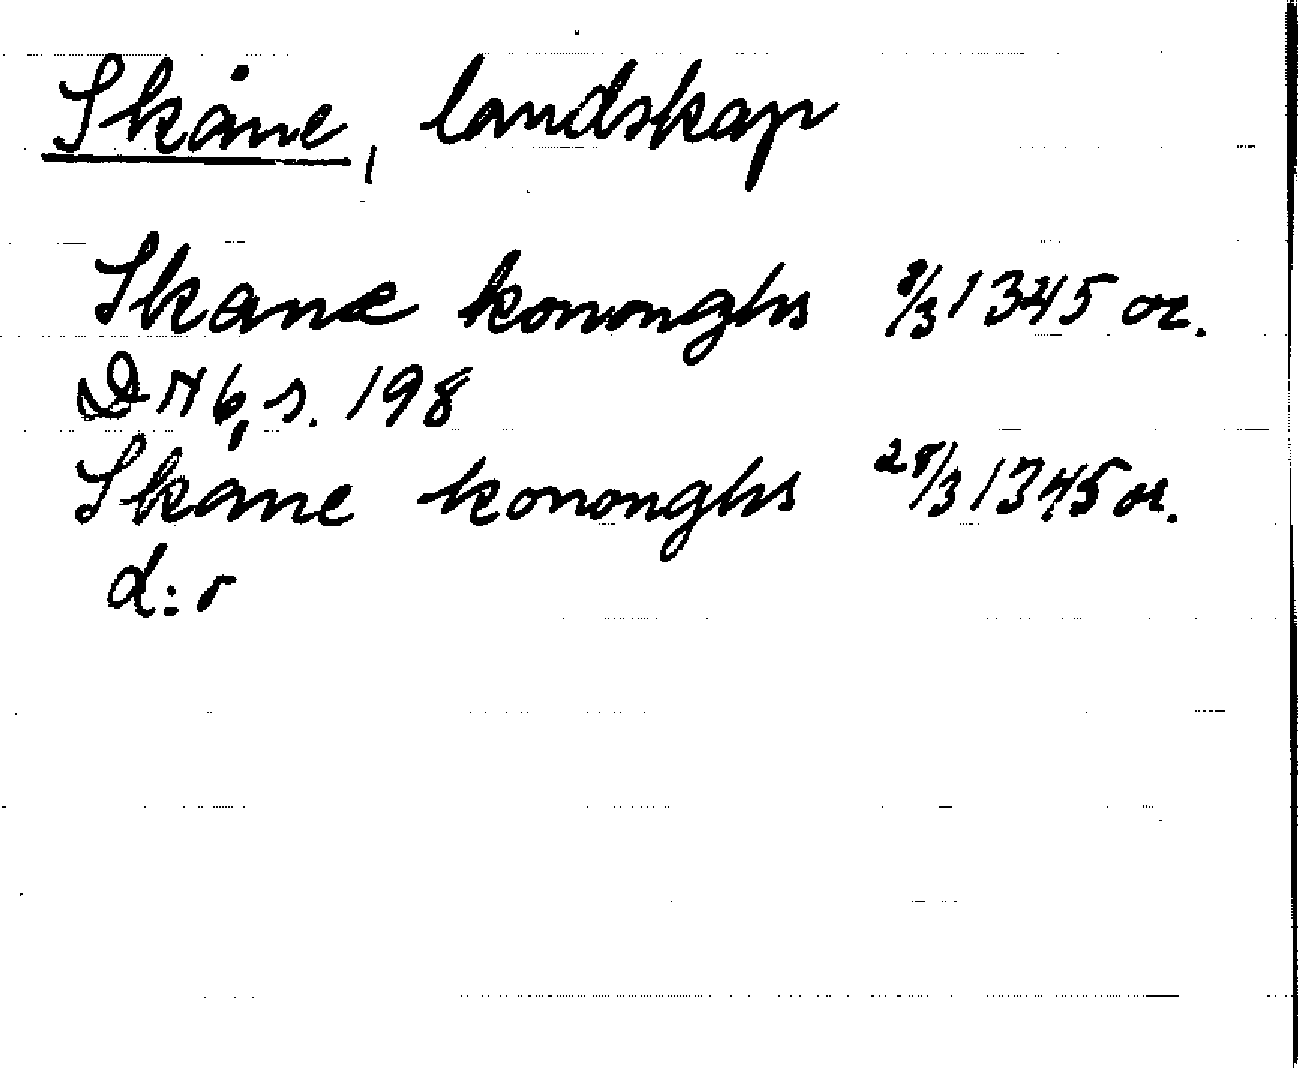 Skåne, landskap
Skanæ kononghs 8/3 1345 or.
DN 6, s. 198
Skane kononghs 28/3 1345 or.
d:o